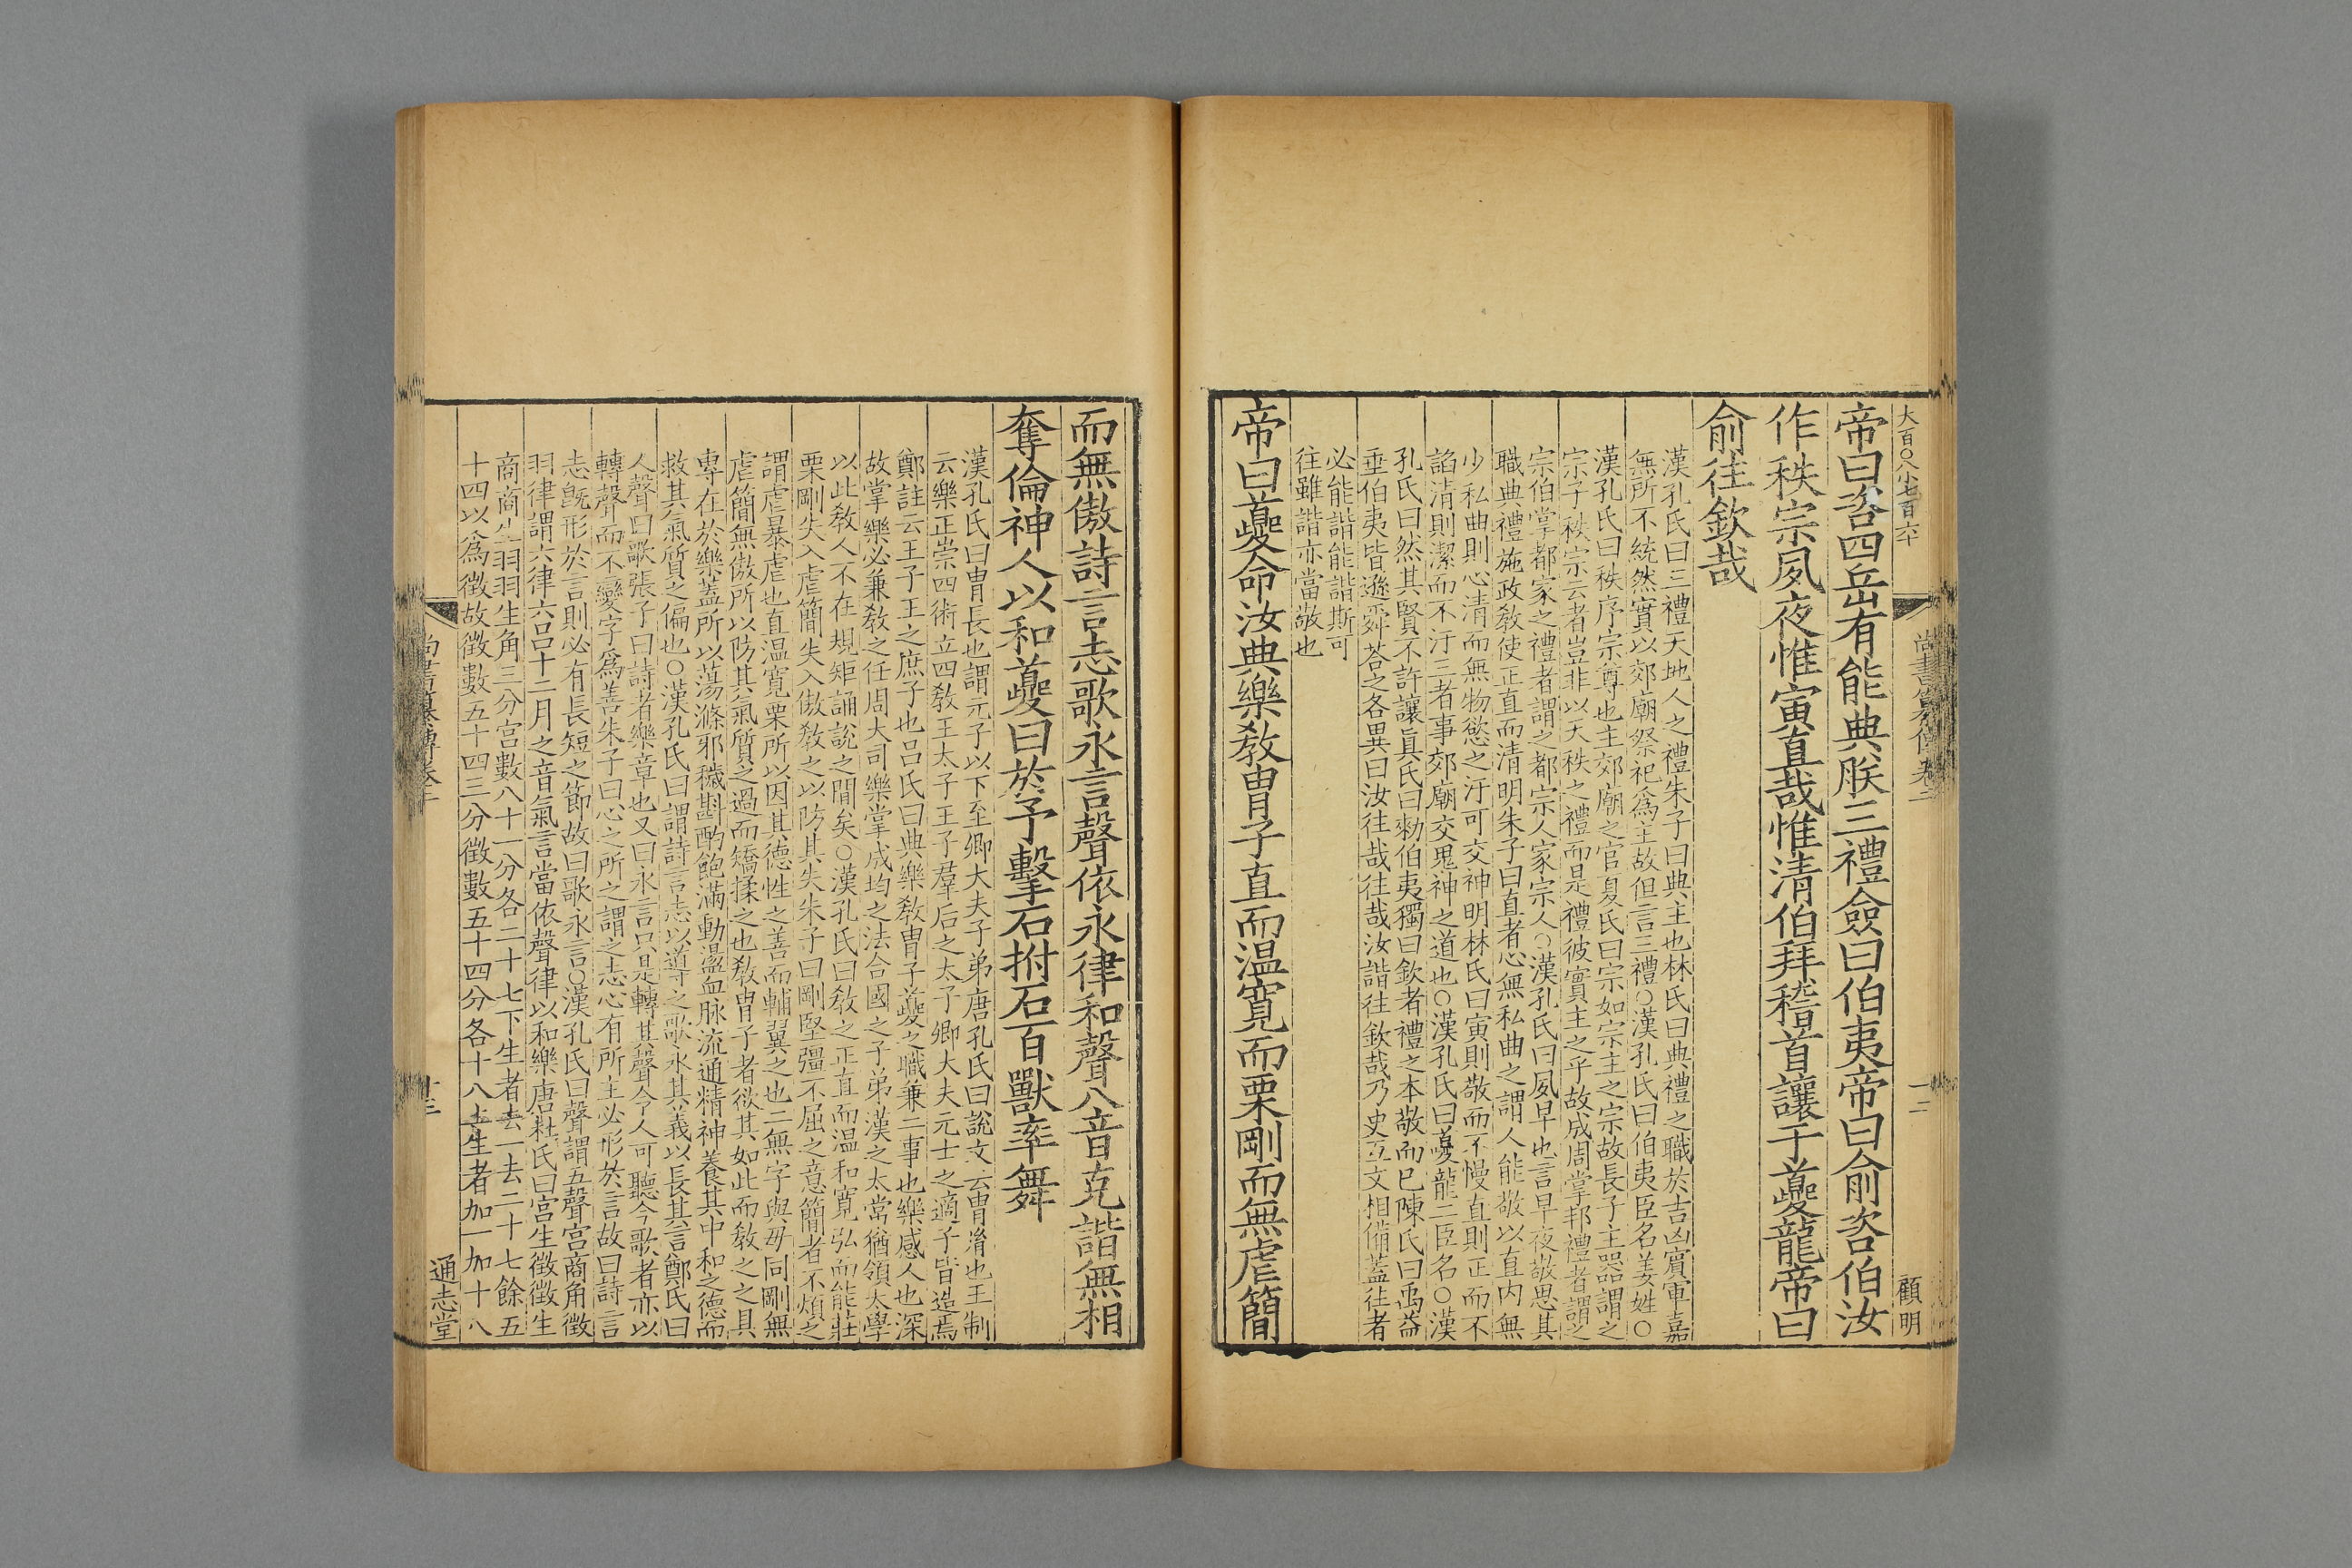 大百〇八小七百六十
尚書纂傳卷二
十二
顧明
帝曰咨四岳有能典朕三禮僉曰伯夷帝曰俞咨伯汝
作秩宗夙夜惟寅直哉惟清伯拜稽首讓于夔龍帝曰
俞往欽哉
漢孔氏曰三禮天地人之禮朱子曰典主也林氏曰典禮之職於吉凶賓軍嘉
無所不統然實以郊廟祭祀爲主故但言三禮○漢孔氏曰伯夷臣名姜姓○
漢孔氏曰秩序宗尊也主郊廟之官夏氏曰宗如宗主之宗故長子主器謂之
宗子秩宗云者豈非以天秩之禮而是禮彼實主之乎故成周掌邦禮者謂之
宗伯掌都家之禮者謂之都宗人家宗人○漢孔氏曰夙早也言早夜敬思其
職典禮施政敎使正直而清明朱子曰直者心無私曲之謂人能敬以直内無
少私曲則心清而無物慾之汙可交神明林氏曰寅則敬而不慢直則正而不
諂清則潔而不汙三者事郊廟交鬼神之道也○漢孔氏曰夔龍二臣名○漢
孔氏曰然其賢不許讓眞氏曰勑伯夷獨曰欽者禮之本敬而已陳氏曰禹益
垂伯夷皆遜舜荅之各異曰汝往哉往哉汝諧往欽哉乃史互文相備蓋往者
必能諧能諧斯可
往雖諧亦當敬也
帝曰夔命汝典樂敎冑子直而温寛而栗剛而無虐簡
而無傲詩言志歌永言聲依永律和聲八音克諧無相
奪倫神人以和夔曰於予擊石拊石百獸率舞
漢孔氏曰冑長也謂元子以下至卿大夫子弟唐孔氏曰說文云冑㣧也王制
云樂正崇四術立四敎王太子王子羣后之太子卿大夫元士之適子皆造焉
鄭註云王子王之庶子也呂氏曰典樂敎冑子夔之職兼二事也樂感人也深
故掌樂必兼敎之任周大司樂掌成均之法合國之子弟漢之太常猶領太學
以此敎人不在規矩誦說之間矣○漢孔氏曰敎之正直而温和寛弘而能莊
栗剛失入虐簡失入傲敎之以防其失朱子曰剛堅彊不屈之意簡者不煩之
謂虐暴虐也直温寛栗所以因其德性之善而輔翼之也二無字與毋同剛無
虐簡無傲所以防其氣質之過而矯揉之也敎冑子者欲其如此而敎之之具
專在於樂蓋所以蕩滌邪穢斟酌飽滿動盪血脉流通精神養其中和之德而
救其氣質之偏也○漢孔氏曰謂詩言志以導之歌永其義以長其言鄭氏曰
人聲曰歌張子曰詩者樂章也又曰永言只是轉其聲令人可聽今歌者亦以
轉聲而不變字爲善朱子曰心之所之謂之志心有所主必形於言故曰詩言
志旣形於言則必有長短之節故曰歌永言○漢孔氏曰聲謂五聲宫商角徵
羽律謂六律六吕十二月之音氣言當依聲律以和樂唐杜氏曰宫生徵徵生
商商生羽羽生角三分宫數八十一分各二十七下生者去一去二十七餘五
十四以爲徵故徵數五十四三分徵數五十四分各十八上生者加一加十八
尚書纂傳卷二
十三
通志堂